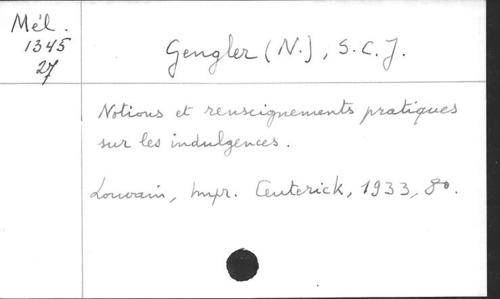 Mél.
1345
27
Gengler (N.), S.C.J.
Notions et renseignements pratiques
sur les indulgences.
Louvain, Impr. Ceuterick, 1933, 8o.